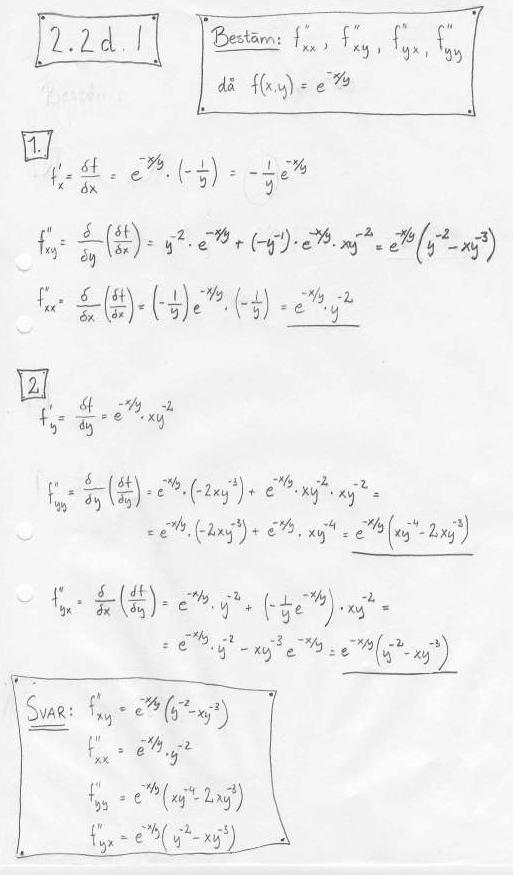 2.2d.1
Bestäm: f''xx, f''xy, f''yx, f''yy
då f(x,y) = e^(-x/y)
1.
f'x = δf/δx = e^(-x/y) · (-1/y) = -1/y e^(-x/y)
f''xy = δ/δy (δf/δx) = y^-2 · e^(-x/y) + (-y^-1) · e^(-x/y) · xy^-2 = e^(-x/y) (y^-2 - xy^-3)
f''xx = δ/δx (δf/δx) = (-1/y) e^(-x/y) · (-1/y) = e^(-x/y) · y^-2
2
f'y = δf/δy = e^(-x/y) · xy^-2
f''yy = δ/δy (δf/δy) = e^(-x/y) · (-2xy^-3) + e^(-x/y) · xy^-2 · xy^-2 =
= e^(-x/y) · (-2xy^-3) + e^(-x/y) · xy^-4 = e^(-x/y) (xy^-4 - 2xy^-3)
f''yx = δ/δx (δf/δy) = e^(-x/y) · y^-2 + (-1/y e^(-x/y)) · xy^-2 =
= e^(-x/y) · y^-2 - xy^-3 e^(-x/y) = e^(-x/y) (y^-2 - xy^-3)
SVAR: f''xy = e^(-x/y) (y^-2 - xy^-3)
f''xx = e^(-x/y) · y^-2
f''yy = e^(-x/y) (xy^-4 - 2xy^-3)
f''yx = e^(-x/y) (y^-2 - xy^-3)